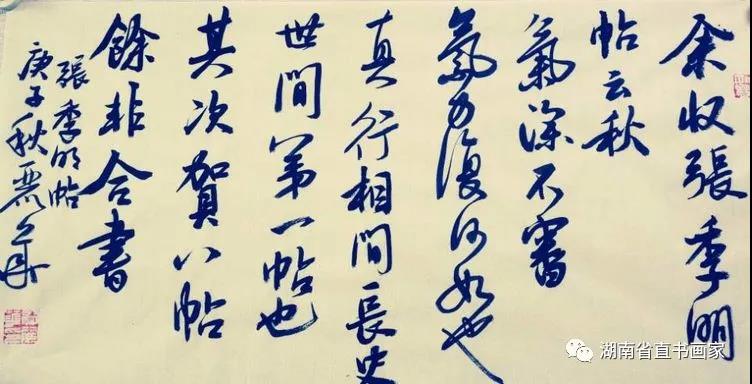 余收張季明
帖云秋
氣深不審
氣力復何如也
真行相間長史
世間第一帖也
其次賀八帖
餘非合書
張季明帖
庚子秋
湖南省直书画家